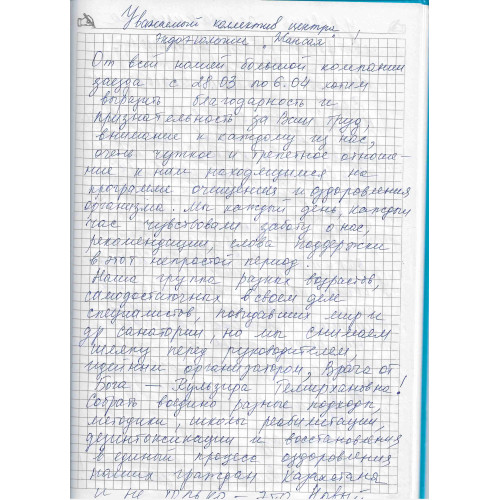 Уважаемый коллектив центра
Эндоэкологии "Мансая"!
От всей нашей большой компании
заезда с 28.03 по 6.04 хотим
выразить благодарность и
признательность за Ваш труд,
внимание к каждому из нас,
очень чуткое и трепетное отноше-
ние к нам находящимся на
программе очищения и оздоровления
организма. Мы каждый день, каждый
час чувствовали заботу о нас,
рекомендации, слова поддержки
в этот непростой период.
Наша группа разных возрастов,
самодостаточных в своем деле
специалистов, повидавших мир и
др санатории, но мы снимаем
шляпу перед руководителем,
идейным организатором, Врача от
Бога — Кульзира Темирхановна!
Собрать воедино разные подходы,
методики, школы реабилитации,
дезинтоксикации и восстановления
в единый процесс оздоровления
наших граждан Казахстана
и не только – это